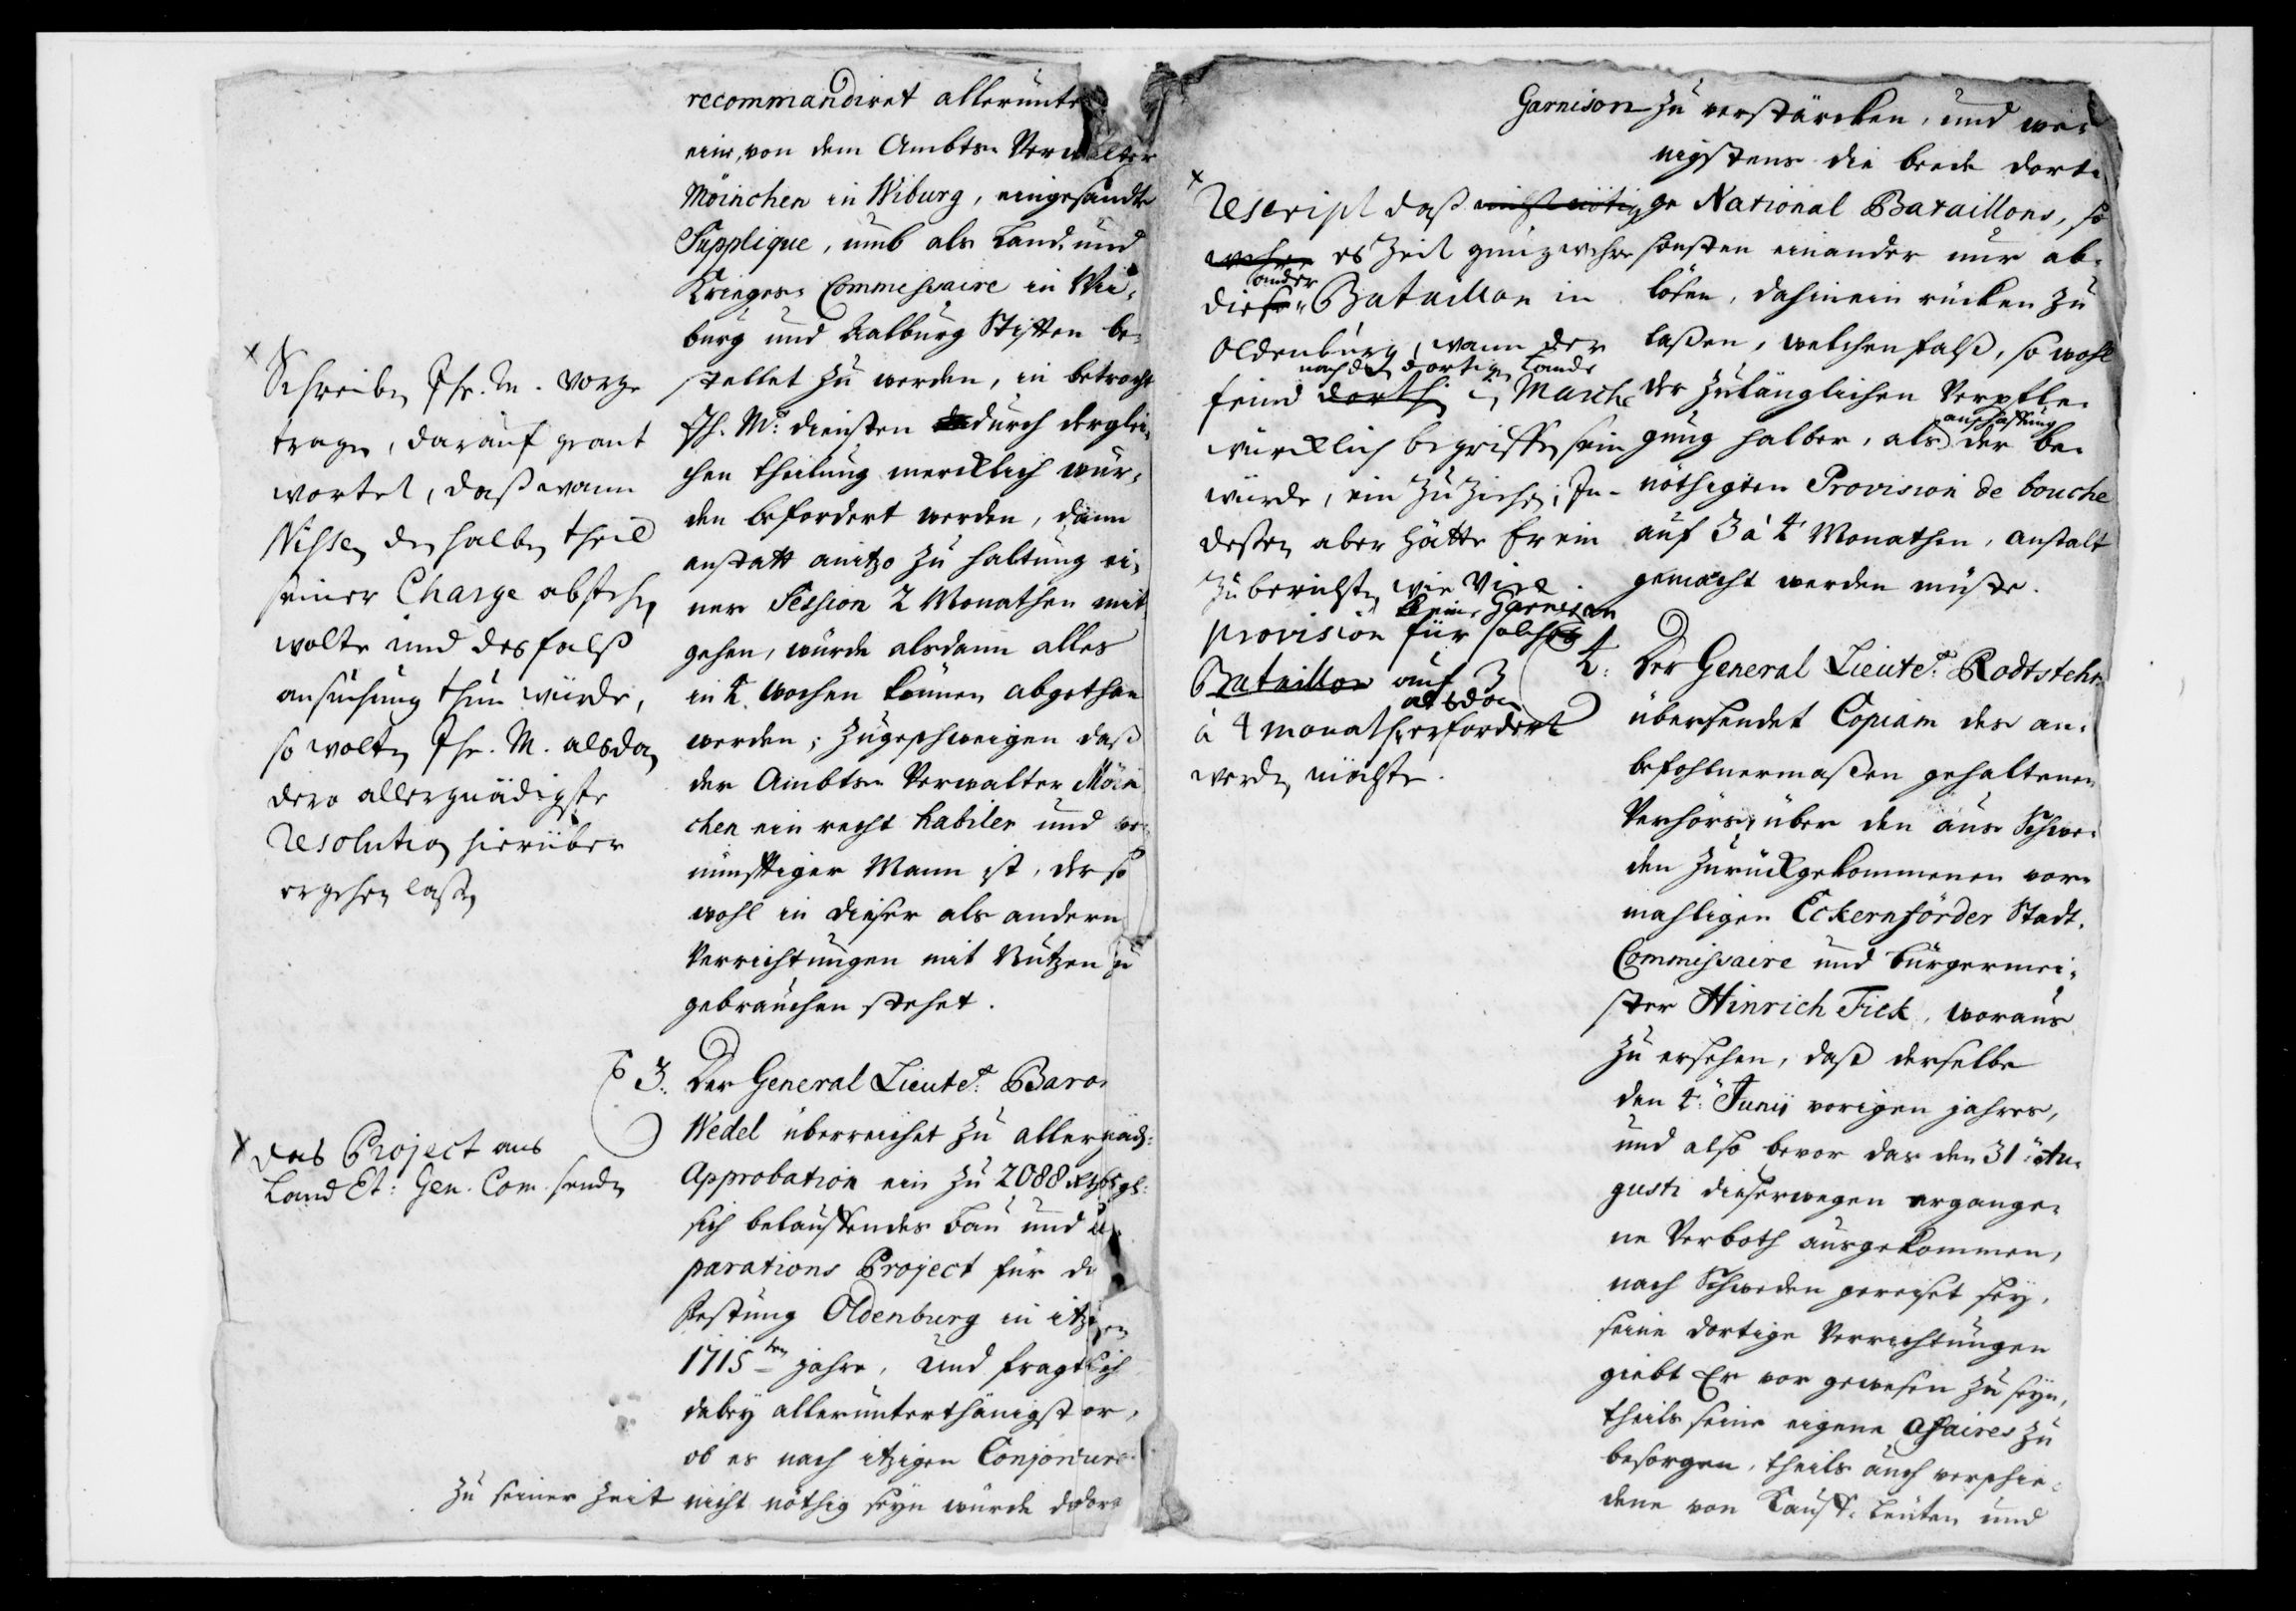 recommandiret allerunte
eine, von dem Ambts- Verwalter
Möinchen in Wiburg, eingesandte
Supplique, umb als Land- und
Krieges- Commissaire in Wi-
burg und Aalburg Stifften be-
stellet zu werden, in betracht
Ih. M: diensten durch derglei-
chen theilung mercklich wür-
den befordert werden, dann
anstatt anitzo zu haltung ei-
ner Session 2 Monathen mit
gehen, würde alsdann alles
in 4 Wochen können abgethan
werden; Zugeschweigen daß
der Ambts- Verwalter Möin
chen ein recht habiler und ver-
nünfftiger Mann ist, der so
wohl in dieser als andern
Verrichtungen mit Nutzen zu
gebrauchen stehet.
x
Schreiben Ihr. M. vorge
tragen, darauf geant
wortet, daß wann
Nissen den halben theil
seiner Charge abstehen
wolte und desfalß
ansuchung thun würde,
so wolten Ihr. M. alsdan
dero allergnädigste
resolution hierüber
ergehen lassen
3. Der General Lieutet: Baron
Wedel überreichet zu allergnädg:
Approbation ein zu 2088
sich belauffendes Bau und Re-
parations Project für die
Festung Oldenburg in itzigen
1715ten jahre, und fragt sich
dabey allerunterthänigst or,
ob es nach itzigen Conjoncture
zu seiner Zeit nicht nöthig seyn würde d dor
x das Project ans
Land Et: Gen. Com. senden
Garnison zu verstärcken, und we-
nigstens die beede dorti-
ge National Bataillons, so
sonsten einander nur ab-
lösen, dahinein rücken zu
laßen, welchenfalß, so wohl
der zulänglichen Verpfle-
gung halber, als anschaffung der be-
nöthigten Provision de bouche
auf 3 à 4 Monathen, anstalt
gemacht werden müste.
x
Rescript daß nicht nötig
wehre es Zeit genug wehre
die andr Bataillon in
Oldenburg, wann der
feind nach den dortigen Lande dorthin in March
würcklich begriffen sein
würde, ein zu ziehen; In-
deßen aber hätte Er ein
zuberichten wie viel
provision für solche Garnison
Bataillon auf 3
à 4 monathen alsdan erfordert
werden möchte.
4. Der General Lieutet: Rodtstehn
übersendet Copiam des an-
befohlnermaßen gehaltenen
Verhörs, über den aus Schwe-
den zurückgekommenen vor-
mahligen Eckernförder Stadt-
Commissaire und bürgermei-
ster Hinrich Fick, woraus
zu ersehen, daß derselbe
den 4: Junii vorigen jahres,
und also bevor das den 31 Au-
gusti dieserwegen ergange-
ne Verboth ausgekommen,
nach Schweden gereiset sey,
seine dortige Verrichtungen
giebt Er vor gewesen zu seyn,
theils seine eigene Affaires zu
besorgen, theils auch verschie-
dene von Kauff- Leuten und